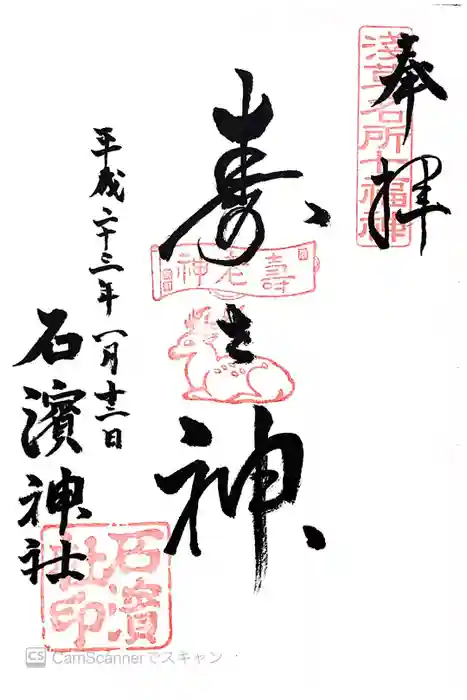 奉拝
淺草名所七福神
寿老神
壽老神
平成二十三年一月十三日
石濱神社
石濱社印
CS CamScannerでスキャン